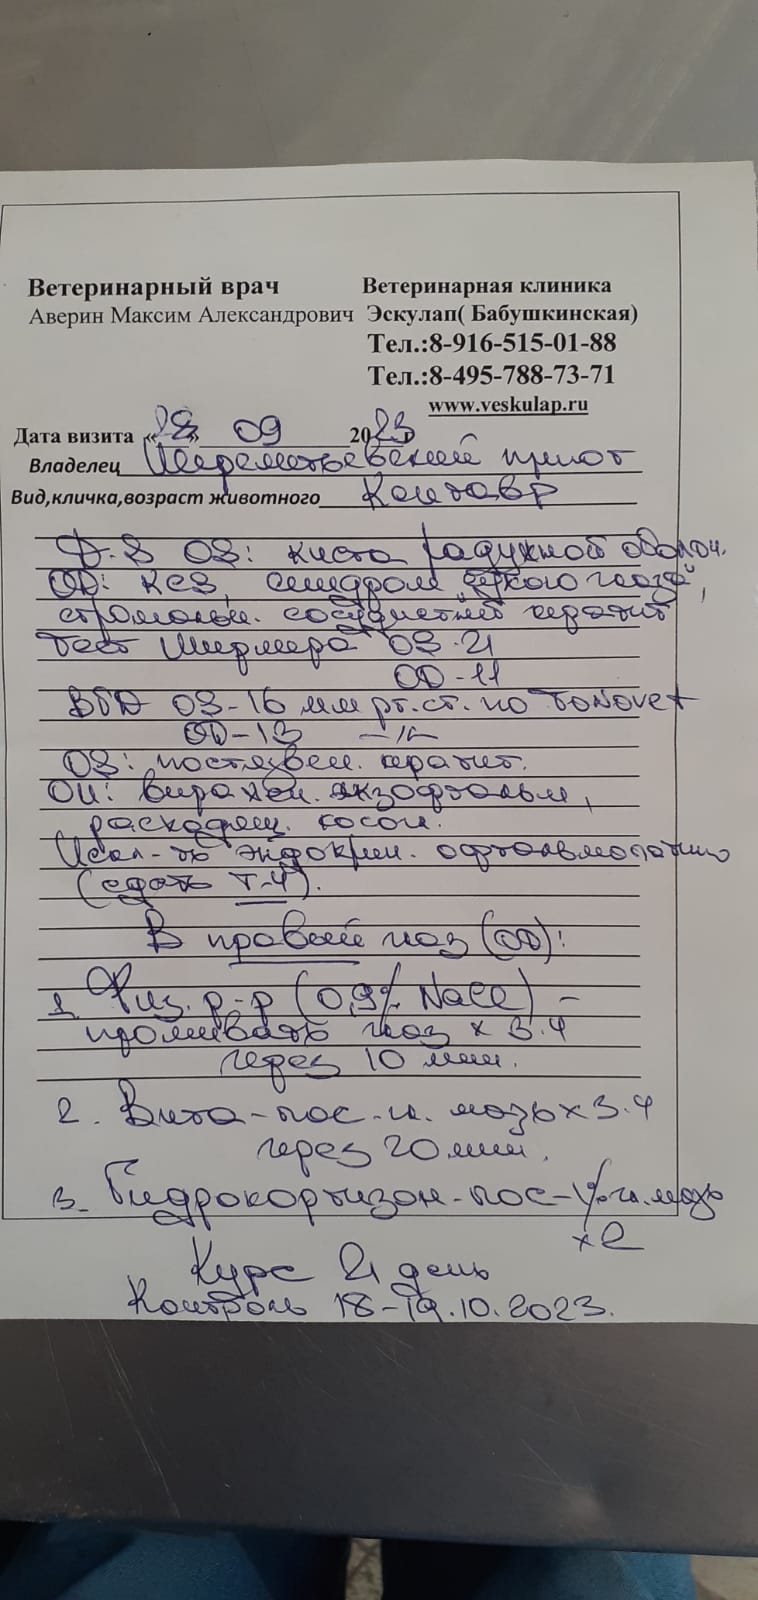 Ветеринарный врач Ветеринарная клиника
Аверин Максим Александрович Эскулап( Бабушкинская)
Тел.:8-916-515-01-88
Тел.:8-495-788-73-71
www.veskulap.ru
Дата визита «28» 09 2023
Владелец Шереметьевский приют
Вид,кличка,возраст животного Кентавр
D.S OS: киста радужной оболоч.
OD: КСЗ, синдром "сухого глаза",
стромальн. сосудистый кератит
Тест Ширмера OS-21
OD-11
ВГД OS-16 мм рт.ст. по Tonovet
OD-13 —//—
OS: постязвен. кератит.
OU: выражен. экзофтальм,
расходящ. косогл.
Искл-ть эндокрин. офтальмопатию
(сдать Т-4).
В правый глаз (OD):
1. Физ. р-р (0,9% NaCl) -
промывать глаз х 3-4
через 10 мин.
2. Вита-пос-гл. мазь х 3-4
через 20 мин.
3. Гидрокортизон-пос-1%-гл. мазь
х 2
Курс 21 день
Контроль 18-19.10.2023.